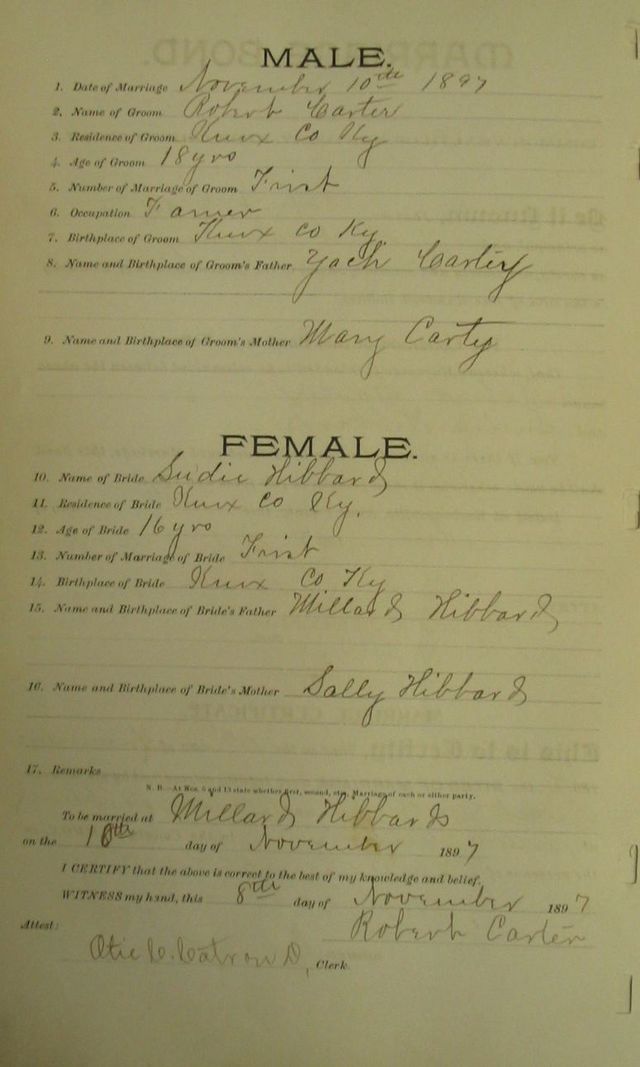 MALE.
1. Date of Marriage November 10th 1897
2. Name of Groom Robert Carter
3. Residence of Groom Knox Co Ky
4. Age of Groom 18 yrs
5. Number of Marriage of Groom First
6. Occupation Farmer
7. Birthplace of Groom Knox Co Ky
8. Name and Birthplace of Groom's Father Zach Carter
9. Name and Birthplace of Groom's Mother Mary Carty
FEMALE.
10. Name of Bride Sudie Hibbard
11. Residence of Bride Knox Co Ky.
12. Age of Bride 16 yrs
13. Number of Marriage of Bride First
14. Birthplace of Bride Knox Co Ky
15. Name and Birthplace of Bride's Father Millard Hibbard
16. Name and Birthplace of Bride's Mother Sally Hibbard
17. Remarks
N. B.—At Nos. 5 and 13 state whether first, second, etc., Marriage of each or either party.
To be married at Millard Hibbards
on the 10th day of November 1897
I CERTIFY that the above is correct to the best of my knowledge and belief.
WITNESS my hand, this 8th day of November 1897
Robert Carter
Attest:
Catron D, Clerk.